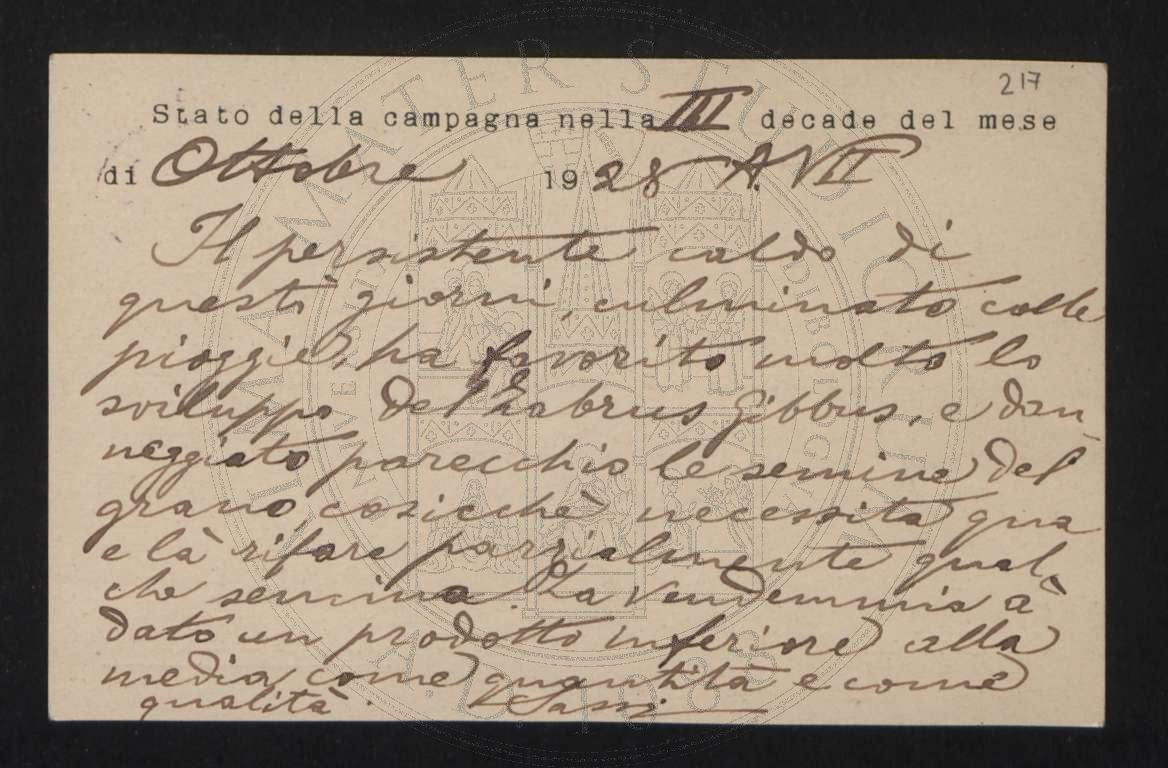 217
Stato della campagna nella III decade del mese
di Ottobre 1928 A. VII
Il persistente caldo di
questi giorni, culminato colle
pioggie, ha favorito molto lo
sviluppo del Zabrus Gibbus, e dan-
neggiato parecchio le semine del
grano, cosicchè necessita qua
e là rifare parzialmente qual-
che semina. La Vendemmia à
dato un prodotto inferiore alla
media, come quantità e come
qualità. Sassi
ALMA MATER STUDIORUM
A.D. 1088